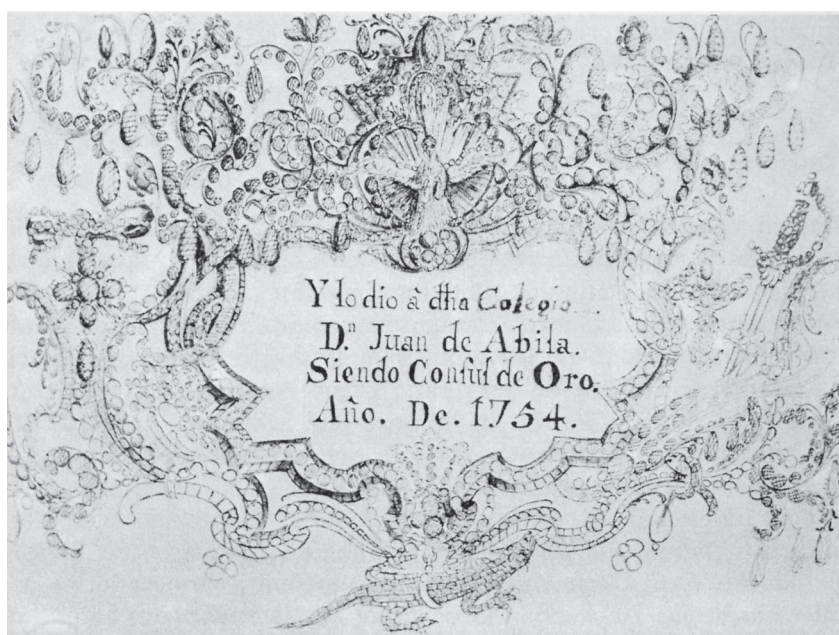 Y lo dio à dha Colegio....
D.ⁿ Juan de Abila.
Siendo Consul de Oro.
Año. De. 1754.